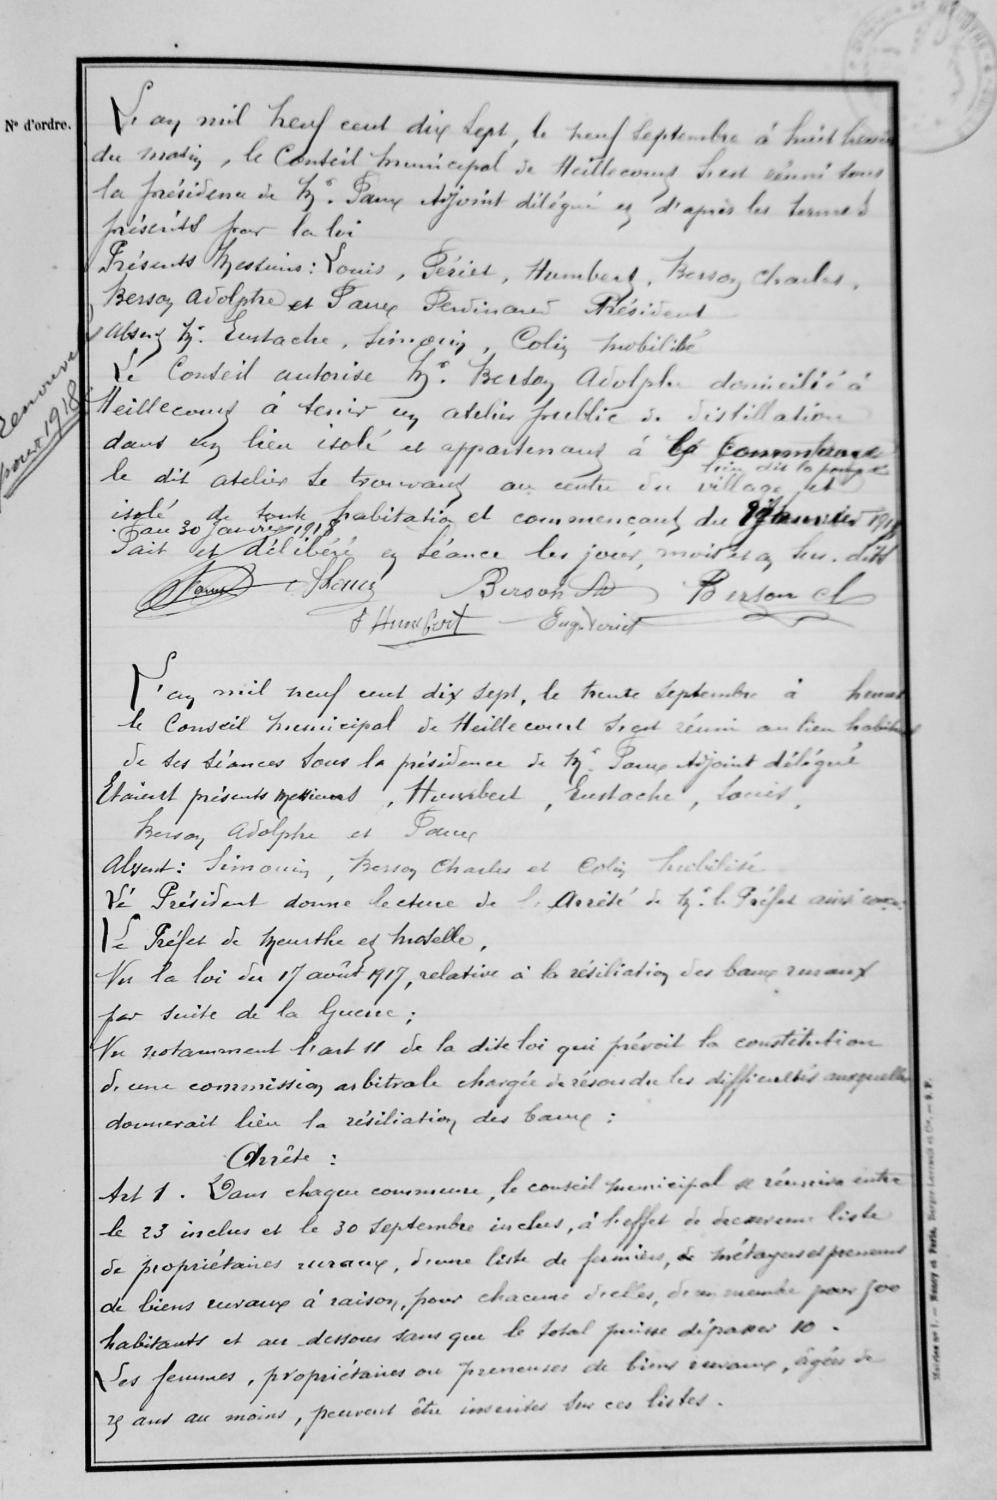 N° d'ordre.
L'an mil neuf cent dix sept, le neuf septembre à huit heures
du matin, le Conseil municipal de Heillecourt s'est réuni sous
la présidence de Mr. Paux Adjoint délégué et d'après les termes
présents par la loi
Présents Messieurs: Louis, Périet, Humbert, Berson Charles,
Berson Adolphe et Paux Ferdinand Président
Absent Mr. Eustache, Simonin, Colin mobilisé
Le Conseil autorise Mr. Berson Adolphe domicilié à
Heillecourt à tenir un atelier public de distillation
dans un lieu isolé et appartenant à la Commune
lieu dit la pompe
le dit atelier se trouvant au centre du village et
isolé de toute habitation et commençant du janvier 1918
au 30 Janvier 1918
Fait et délibéré en séance les jour, mois et an sus. dits
Renouvelé
pour 1918
Paux Louis Berson Ad Berson Ch
Humbert Eug. Periet
L'an mil neuf cent dix sept, le trente septembre à heures
le Conseil municipal de Heillecourt s'est réuni au lieu habituel
de ses séances sous la présidence de Mr. Paux Adjoint délégué
Etaient présents Messieurs, Humbert, Eustache, Louis,
Berson Adolphe et Paux
Absent: Simonin, Berson Charles et Colin mobilisé
Le Président donne lecture de l'Arrêté de Mr. le Préfet ainsi conçu:
Le Préfet de Meurthe et Moselle,
Vu la loi du 17 août 1917, relative à la résiliation des baux ruraux
par suite de la Guerre;
Vu notamment l'art 11 de la dite loi qui prévoit la constitution
d'une commission arbitrale chargée de résoudre les difficultés auxquelles
donnerait lieu la résiliation des baux:
Arrête:
Art 1. Dans chaque commune, le conseil municipal se réunira entre
le 23 inclus et le 30 septembre inclus, à l'effet de dresser une liste
de propriétaires ruraux, d'une liste de fermiers, de métayers et preneurs
de biens ruraux à raison, pour chacune d'elles, d'un membre pour 500
habitants et au dessous sans que le total puisse dépasser 10.
Les femmes, propriétaires ou preneuses de biens ruraux, âgées de
25 ans au moins, peuvent être inscrites sur ces listes.
Nancy et Paris, Berger-Levrault et Cie.